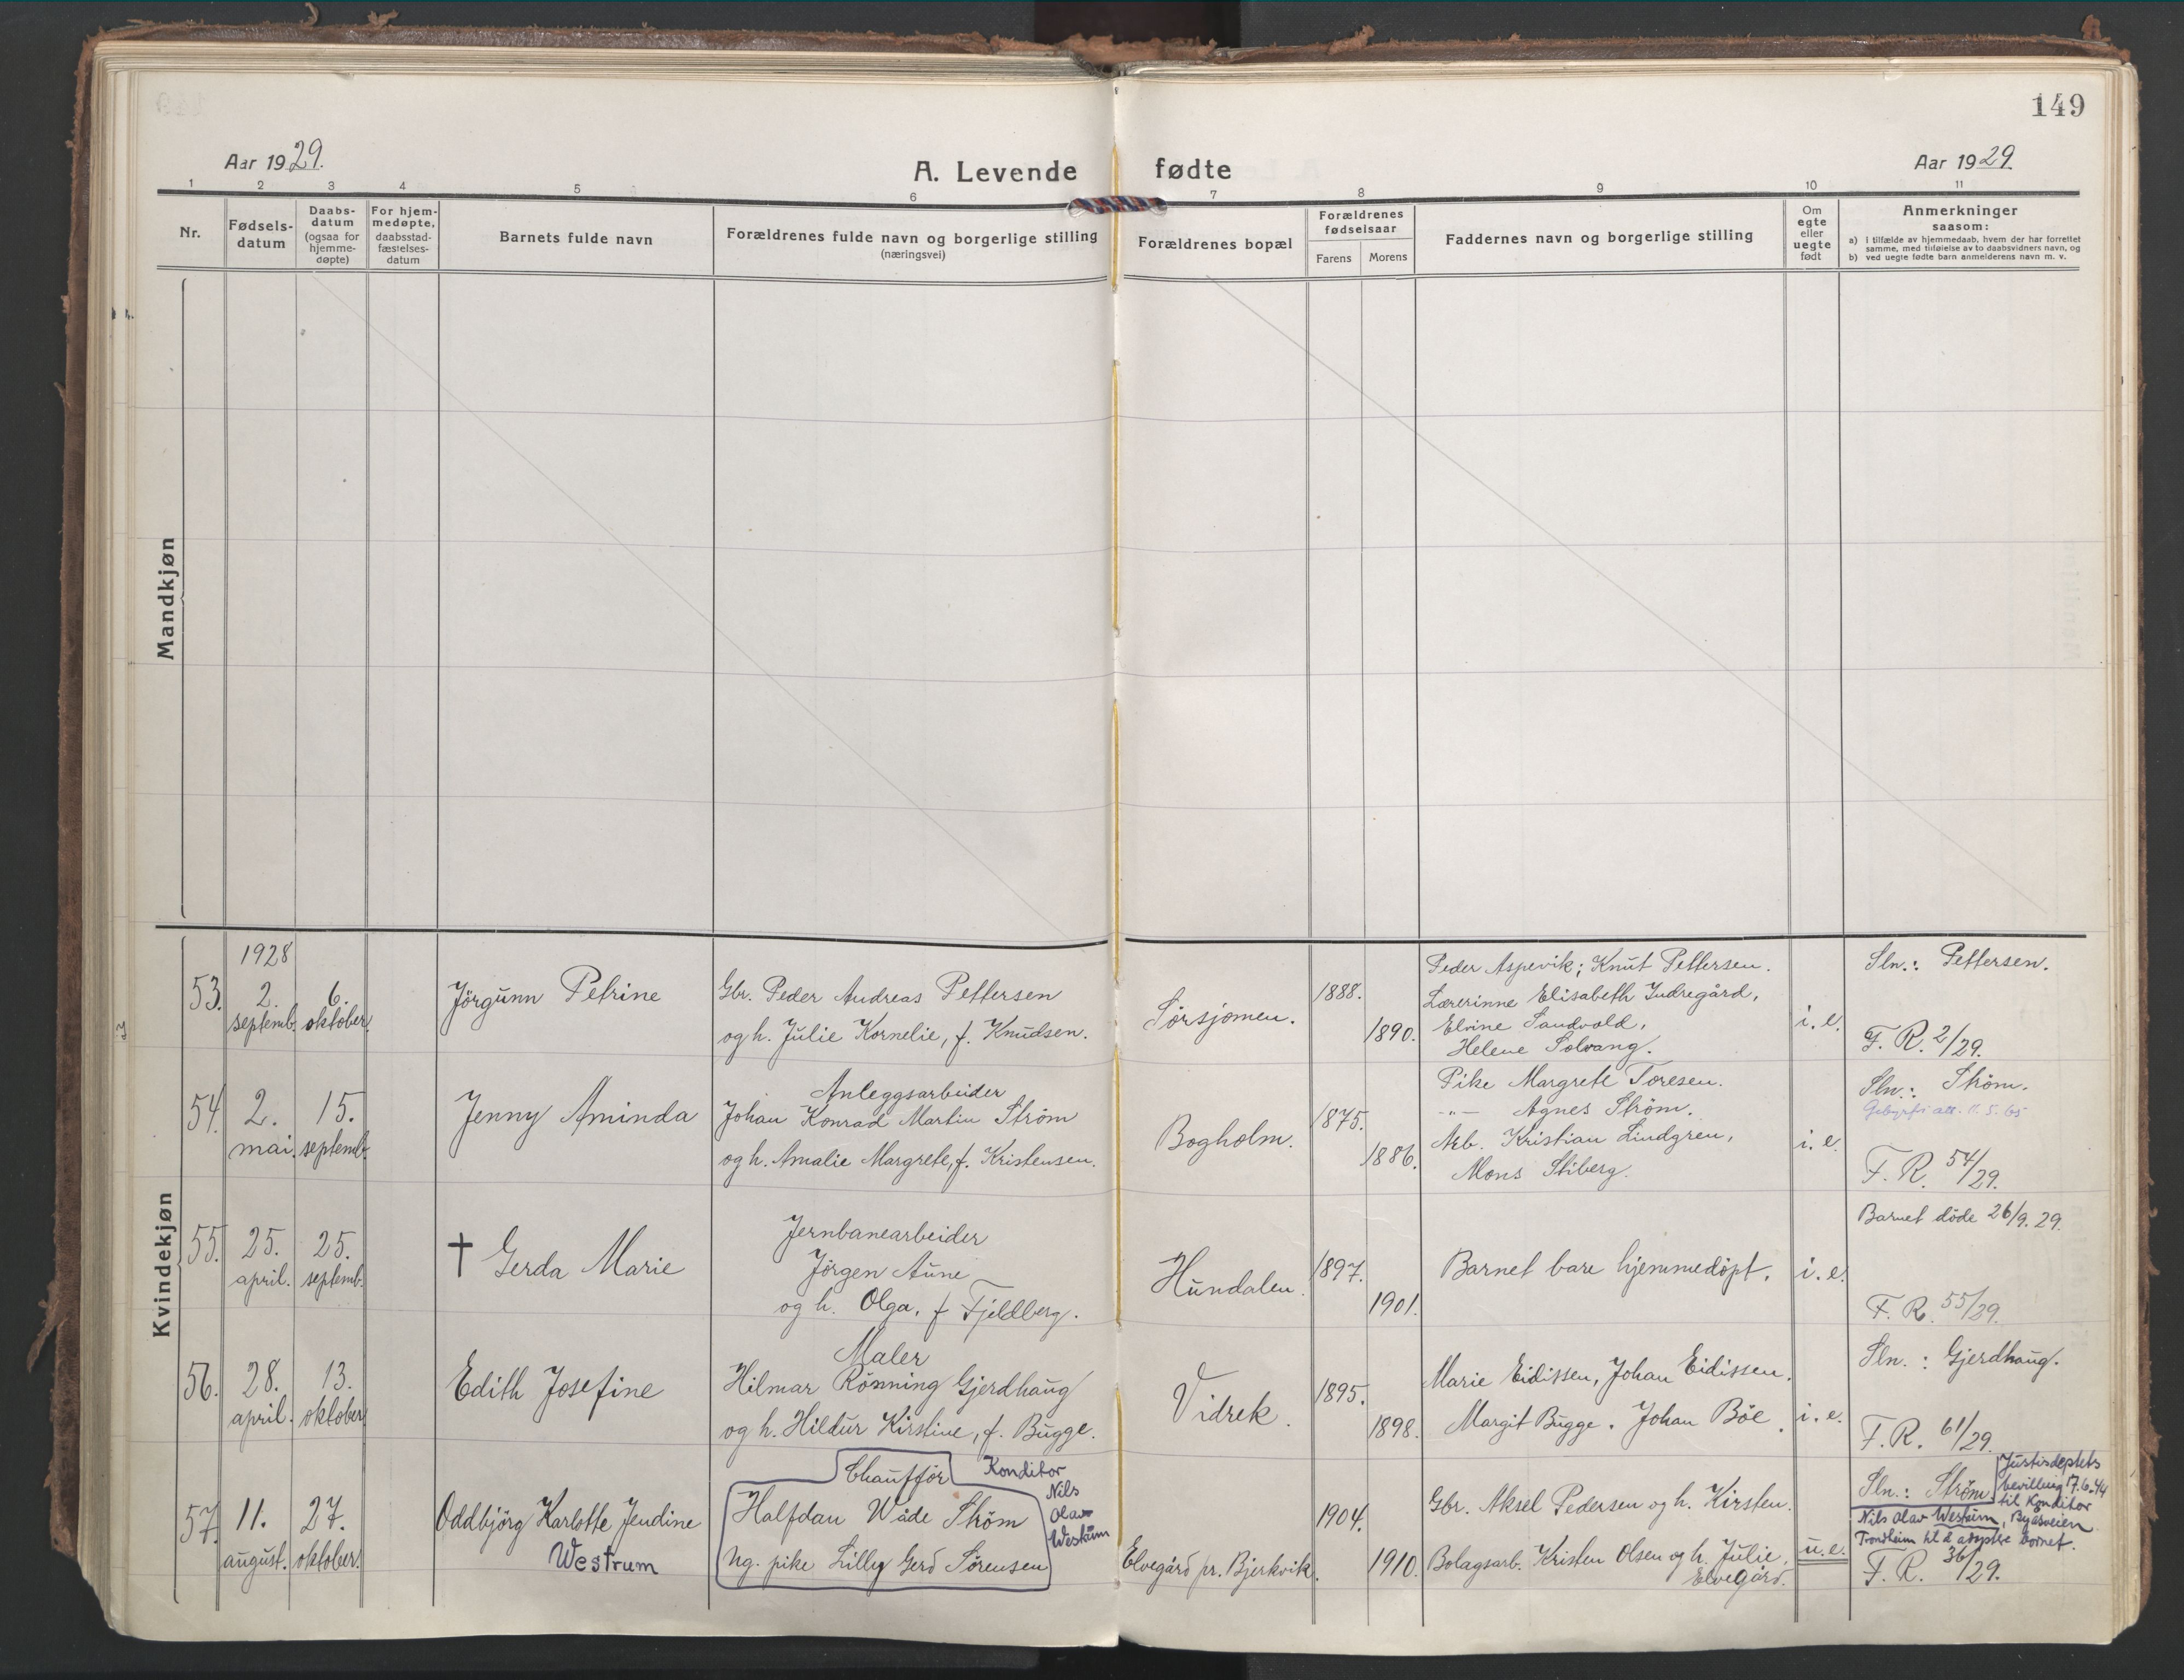 149
Aar 1929.
A. Levende fødte
Aar 1929
1 2 3 4 5 6 7 8 9 10 11
Nr.
Fødsels-
datum
Daabs-
datum
(ogsaa for
hjemme-
døpte)
For hjem-
medøpte,
daabsstad-
fæstelses-
datum
Barnets fulde navn
Forældrenes fulde navn og borgerlige stilling
(næringsvei)
Forældrenes bopæl
Forældrenes
fødselsaar
Farens Morens
Faddernes navn og borgerlige stilling
Om
egte
eller
uegte
født
Anmerkninger
saasom:
a) i tilfælde av hjemmedaab, hvem der har forrettet
samme, med tilføielse av to daabsvidners navn, og
b) ved uegte fødte barn anmelderens navn m. v.
Mandkjøn
Kvindekjøn
53.
1928
2.
septemb.
6.
oktober.
Jörgunn Petrine
Gbr. Peder Andreas Pettersen
og h. Julie Kornelie, f. Knudsen.
Sörsjomen.
1888.
1890.
Peder Aspevik; Knut Pettersen.
Lærerinne Elisabeth Indregård,
Elvine Sandvold,
Helene Solvang.
i. e.
Sln.: Pettersen.
F. R. 2/29.
54.
2.
mai.
15.
septemb.
Jenny Aminda
Anleggsarbeider
Johan Konrad Martin Ström
og h. Amalie Margrete, f. Kristensen.
Bogholm.
1875.
1886.
Pike Margrete Toresen.
-"- Agnes Ström.
Arb. Kristian Lindgren,
Mons Stiberg.
i. e.
Sln.: Ström.
att. 11. 5. 65
F. R. 54/29.
55.
25.
april.
25.
septemb.
† Gerda Marie
Jernbanearbeider
Jörgen Aune
og h. Olga, f Fjeldberg.
Hundalen.
1897.
1901.
Barnet bare hjemmedöpt.
i. e.
Barnet döde 26/9. 29.
F. R. 55/29.
56.
28.
april.
13.
oktober
Edith Josefine
Maler
Hilmar Rönning Gjerdhaug
og h. Hildur Kirstine, f. Bugge.
Vidrek.
1895.
1898.
Marie Eidissen, Johan Eidissen.
Margit Bugge. Johan Böe.
i. e.
Sln. : Gjerdhaug.
F. R. 61/29.
57.
11.
august.
27.
oktober.
Oddbjörg Karlotte Jendine
Westrum
Chauffør
Halfdan Wåde Ström
Ug. pike Lilly Gerd Sörensen
Konditor
Nils
Olav
Westrum
Elvegård pr. Bjerkvik.
1904.
1910.
Gbr. Aksel Pedersen og h. Kirsten.
Bolagsarb. Kristen Olsen og h. Julie,
Elvegård.
u. e.
Sln.: Ström.
Justisdeptets
bevilling 17.6.44
til Konditor
Nils Olav Westrum, Byåsveien
Trondheim til å adoptere barnet.
F. R. 36/29.